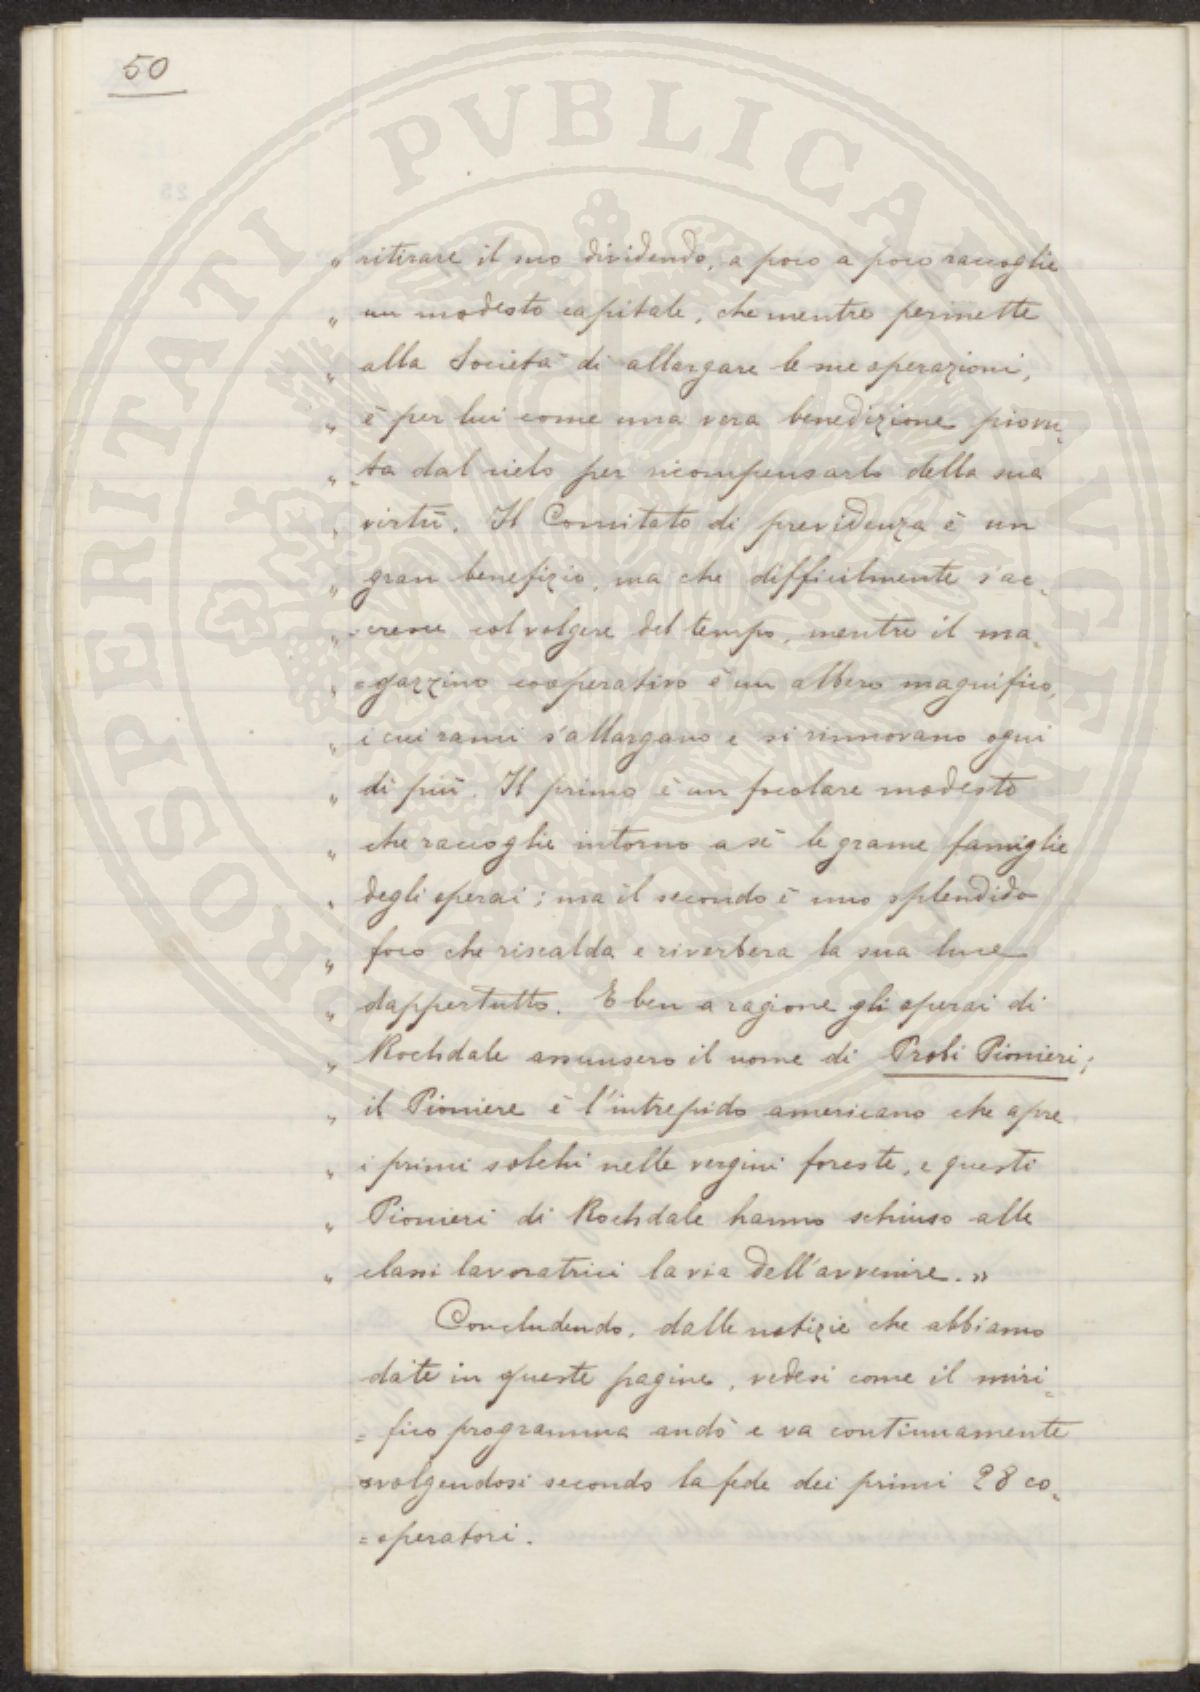 50
PROSPERITATI PVBLICAE AVGENDAE
„ ritirare il suo dividendo, a poco a poco raccoglie
„ un modesto capitale, che mentre permette
„ alla Società di allargare le sue operazioni,
„ è per lui come una vera benedizione piovu-
„ -ta dal cielo per ricompensarlo della sua
„ virtù. Il Comitato di previdenza è un
„ gran benefizio, ma che difficilmente s'ac-
„ -cresce col volgere del tempo, mentre il ma-
„ =gazzino cooperativo è un albero magnifico,
„ i cui rami s'allargano e si rinnovano ogni
„ dì più. Il primo è un focolare modesto
„ che raccoglie intorno a sè le grame famiglie
„ degli operai; ma il secondo è uno splendido
„ foco che riscalda e riverbera la sua luce
„ dappertutto. E ben a ragione gli operai di
„ Rochdale assunsero il nome di Probi Pionieri;
„ il Pioniere è l'intrepido americano che apre
„ i primi solchi nelle vergini foreste, e questi
„ Pionieri di Rochdale hanno schiuso alle
„ classi lavoratrici la via dell'avvenire.»
Concludendo, dalle notizie che abbiamo
date in queste pagine, vedesi come il miri-
= fico programma andò e va continuamente
svolgendosi secondo la fede dei primi 28 co-
=operatori.